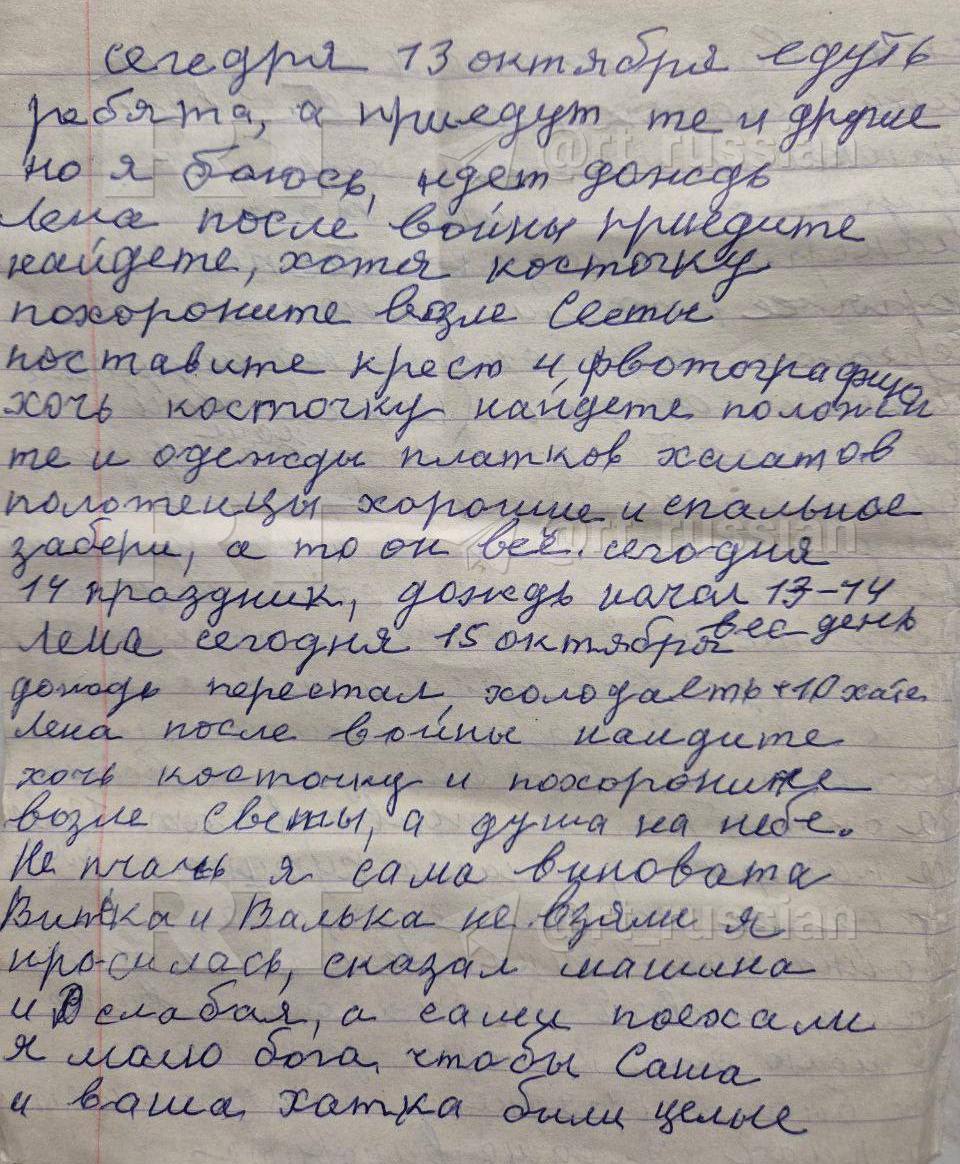 сегедря 13 октября едуть
ребята, а приедут те и другие
но я боюсь, идет дождь
Лена после войны приедите
найдете, хотя косточку
похороните возле Светы
поставите крест и фвотографию
хочь косточку найдете положи
те и одежды платков халатов
полотенцы хорошие и спальное
забери, а то он все. сегодня
14 праздник, дождь начал 13-14
Лена сегодня 15 октября вес день
дождь перестал, холодаеть +10 хате
Лена после войны наидите
хочь косточку и похороните
возле Светы, а душа на небе.
Не плачь я сама виновата
Витька и Валька не взяли я
просилась, сказал машина
и слабая, а сами поехали
я малю бога чтобы Саша
и ваша хатка били целые
RT
@rt_russian
RT
@rt_russian
RT
@rt_russian